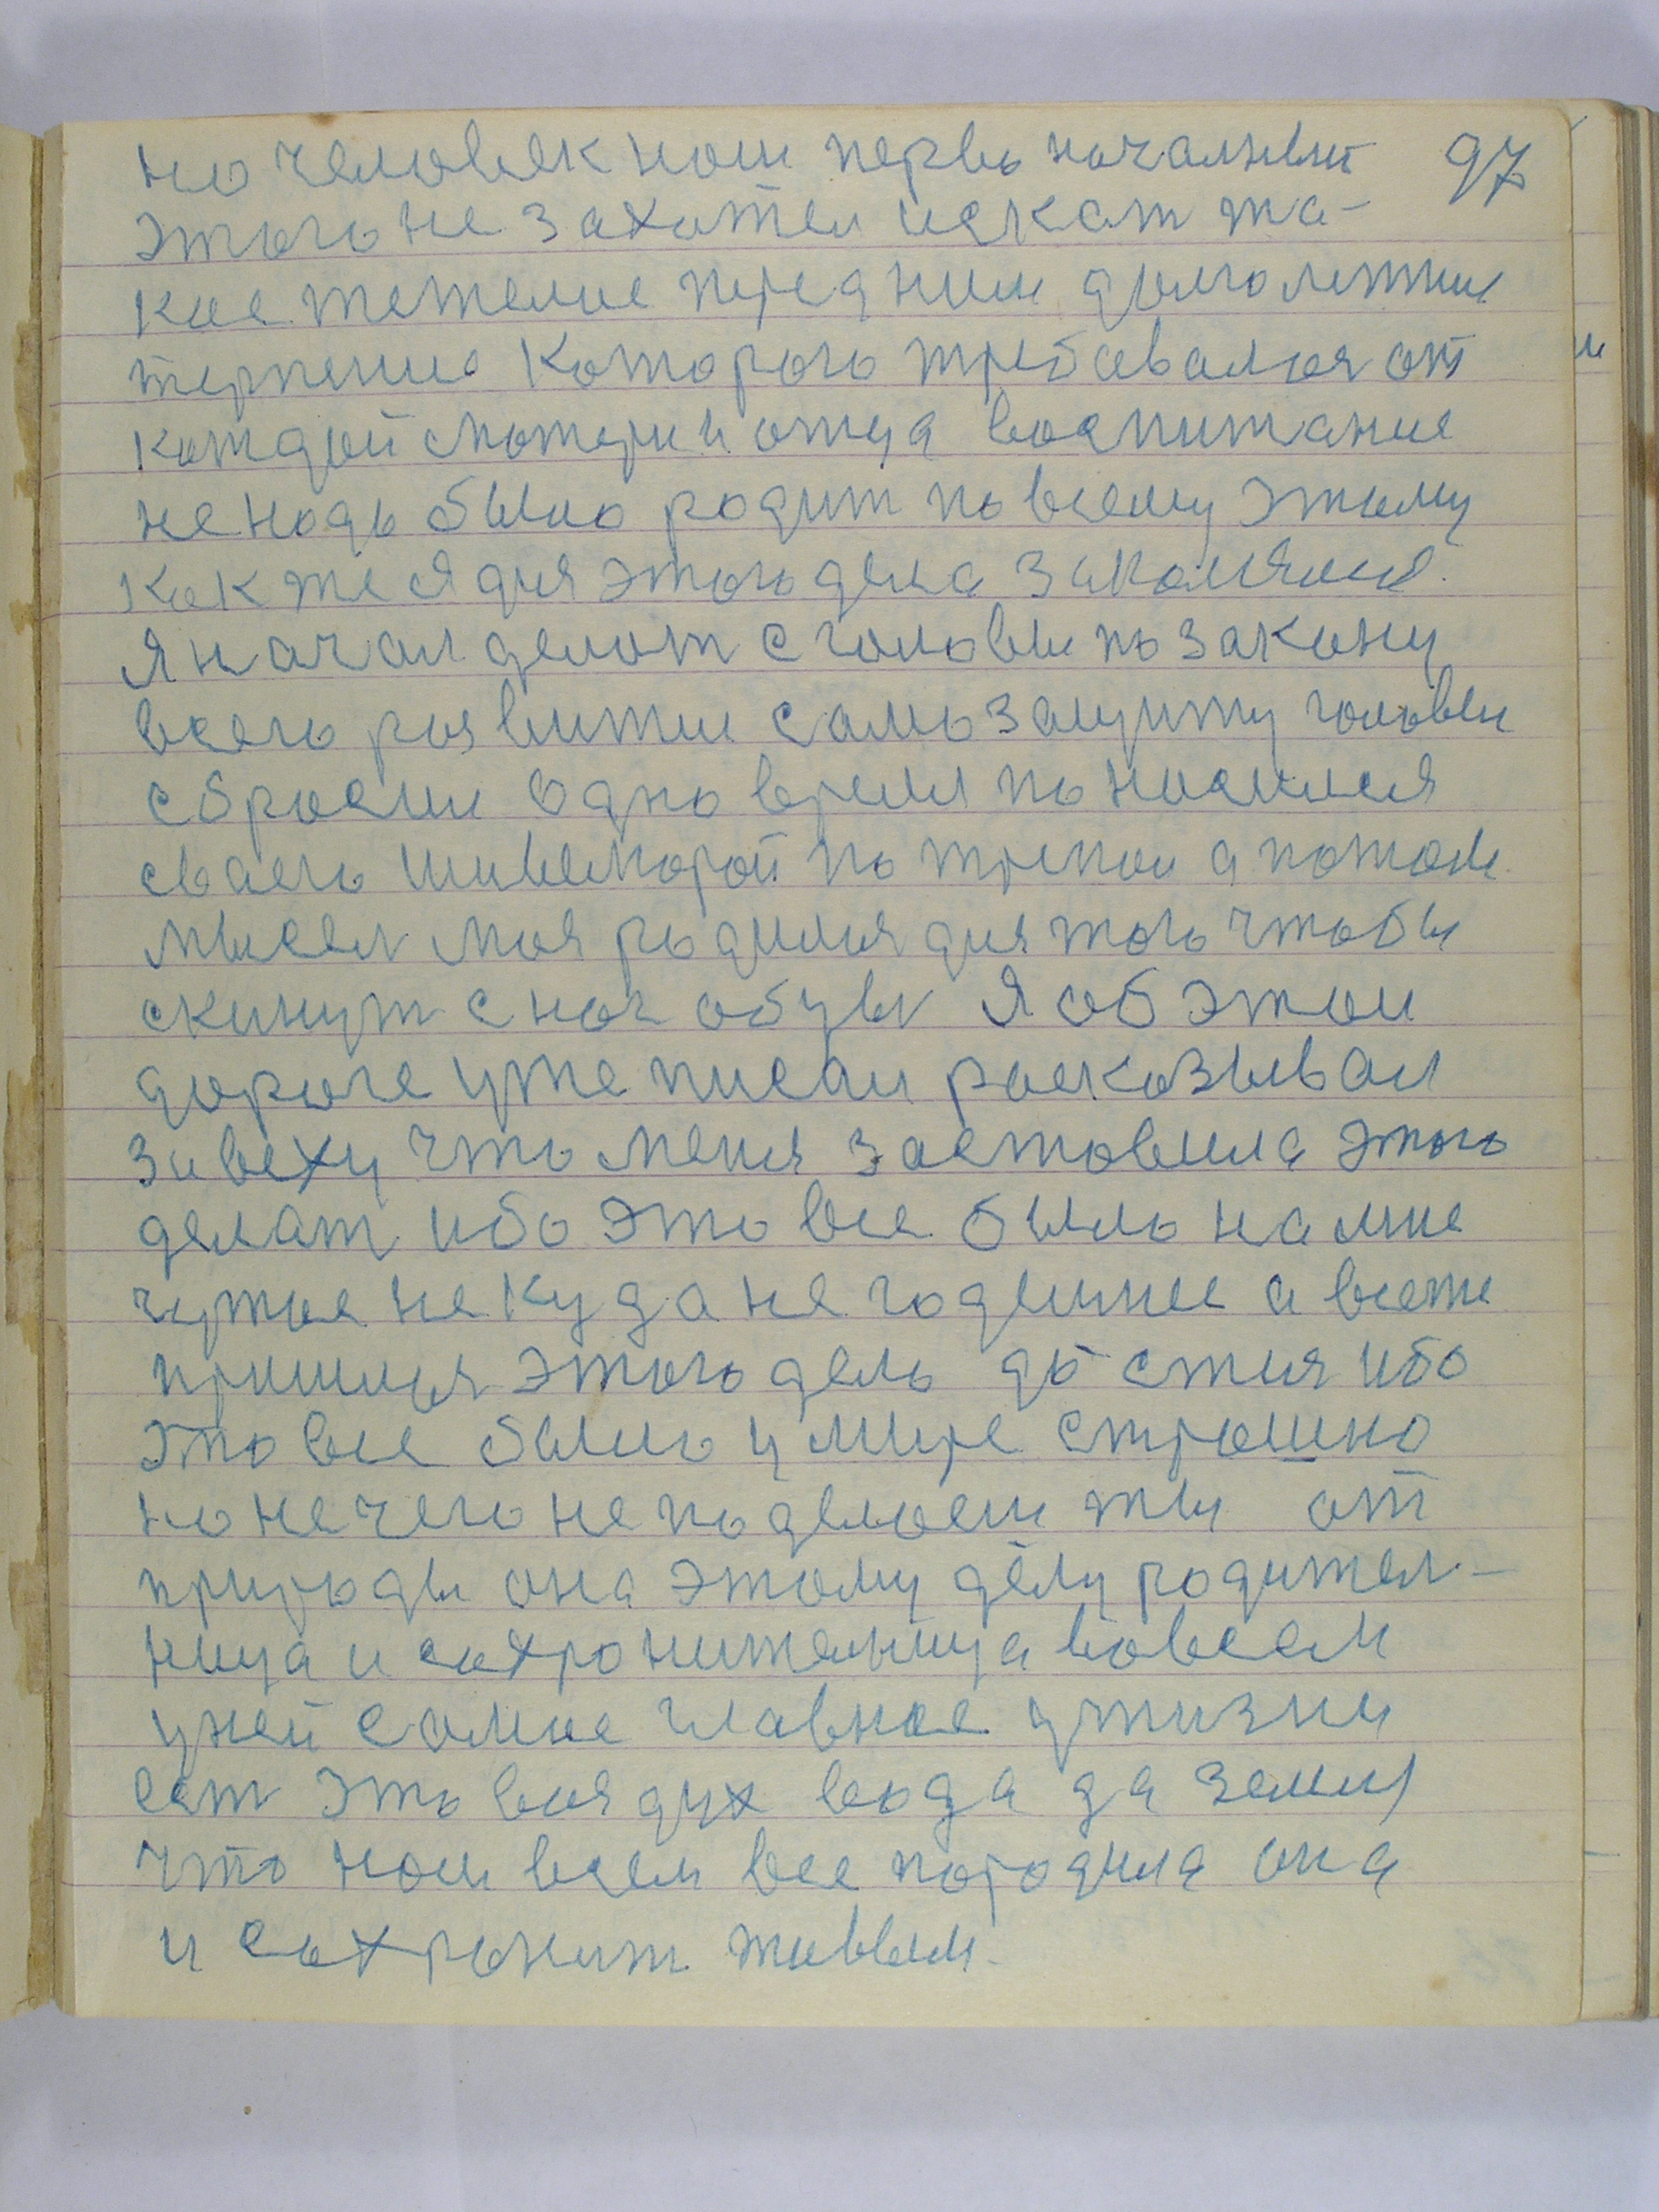 но человек нош первь началный 97
этого не захотел искат та-
кие тежелие пред ним долголетни
терпение которого требавалося от
каждой матери и отца воспитание
не нодь было родит по всему этому
как же я для этого дела закаляюс
я начал делат с головы по закону
всего развитии самозащиту головы
сбросил одно время поносился
сваего шивелюрой по трепал а потом
мысел моя родилия для того чтобы
скинут с ног обувь я об этои
дороге уже писал расказывал
за веху что меня заставила этого
делат ибо это все было на мне
чужое не куда не годящиее а всеже
пришлося этого дель до стия ибо
это все было у мире страшно
но не чего не поделаеш ты от
природы она этому делу родител-
ница и сохронителница вовсем
уней самое главное у жизни
ест это воздух вода да земля
что ном всем все породила она
и сохронит живым.